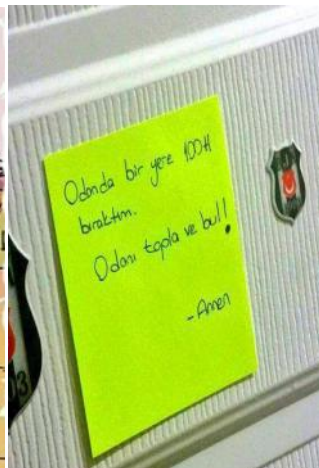 Odanda bir yere 100tl
bıraktım.
Odanı topla ve bul!
-Annen